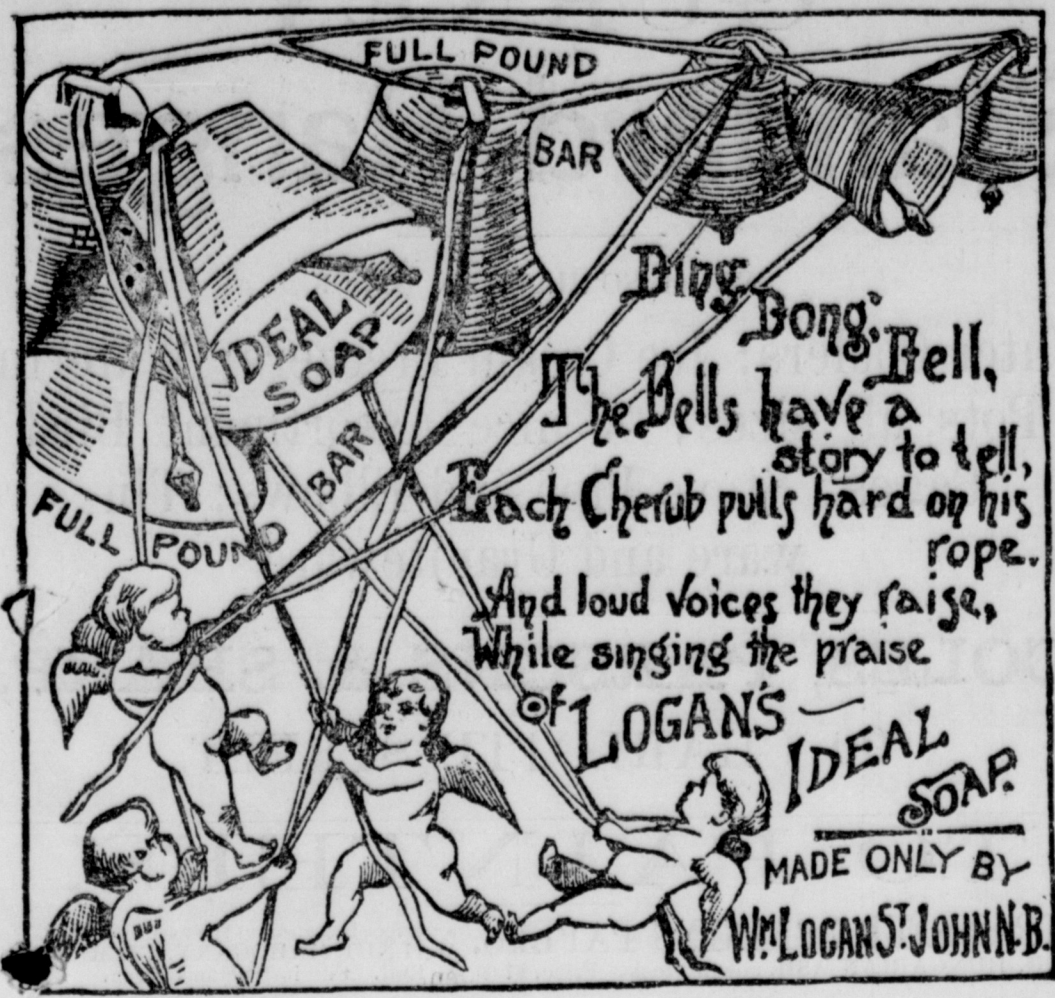 FULL POUND
BAR
IDEAL
SOAP
FULL POUND
BAR
Ding
Dong,
Bell,
The Bells have a
story to tell,
Each Cherub pulls hard on his
rope.
And loud voices they raise,
While singing the praise
OF LOGAN'S
IDEAL
SOAP.
MADE ONLY BY
WM LOGAN ST. JOHN N.B.